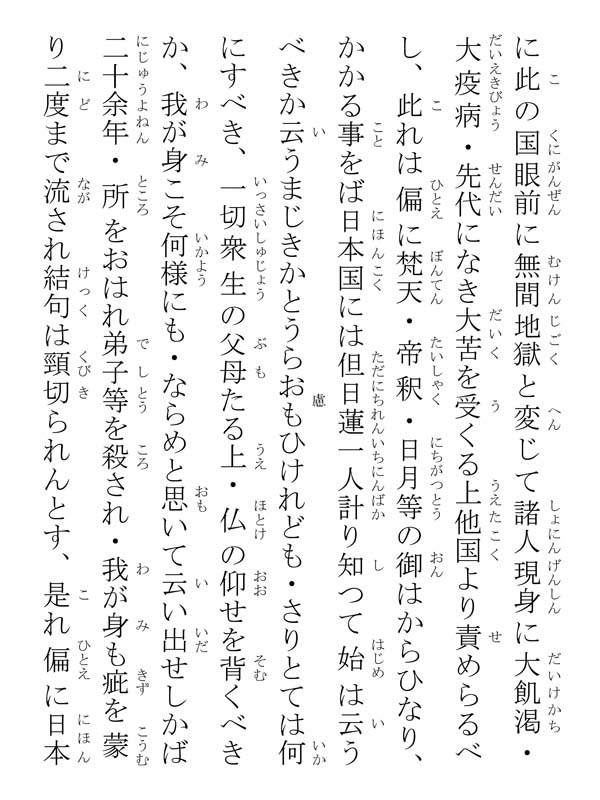 に此の国眼前に無間地獄と変じて諸人現身に大飢渇・
大疫病・先代になき大苦を受くる上他国より責めらるべ
し、此れは偏に梵天・帝釈・日月等の御はからひなり、
かかる事をば日本国には但日蓮一人計り知つて始は云う
べきか云うまじきかとうらおもひけれども・さりとては何
にすべき、一切衆生の父母たる上・仏の仰せを背くべき
か、我が身こそ何様にも・ならめと思いて云い出せしかば
二十余年・所をおはれ弟子等を殺され・我が身も疵を蒙
り二度まで流され結句は頸切られんとす、是れ偏に日本